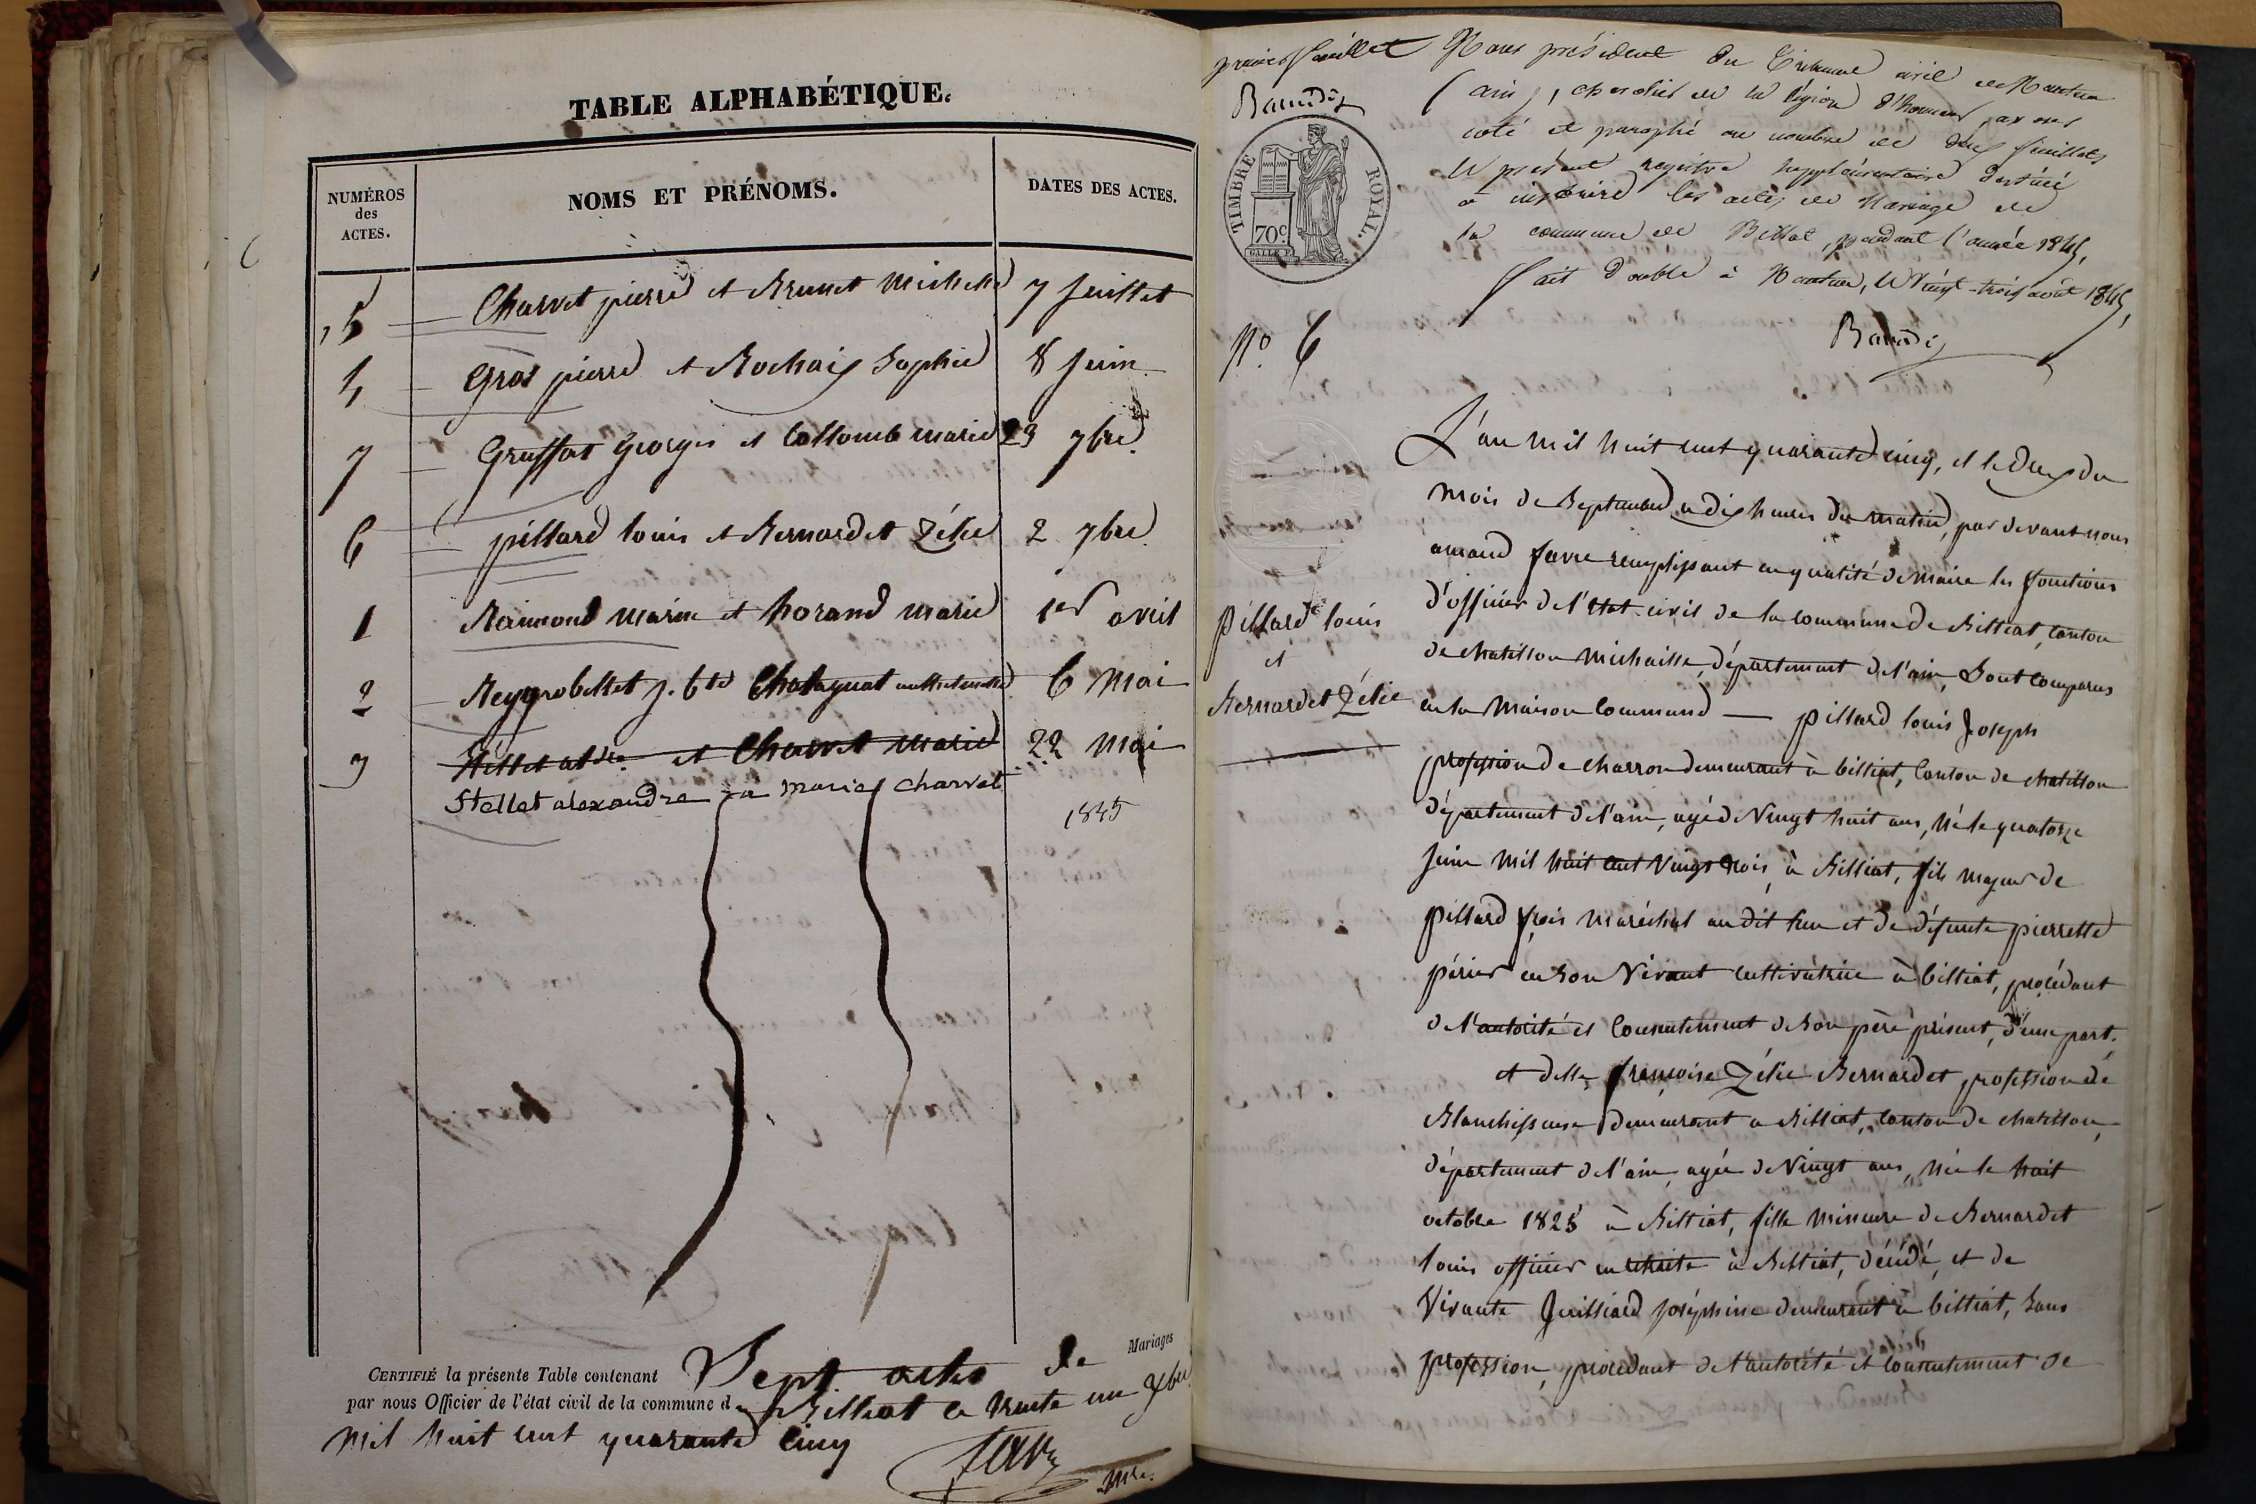 TABLE ALPHABÉTIQUE.
NUMÉROS des ACTES.
NOMS ET PRÉNOMS.
DATES DES ACTES.
5 Charvet pierre et Brunet Michelle 7 Juillet
4 Gros pierre et Rochaix Sophie 8 Juin
7 Gruffat Georges et Collomb marie 29 7bre
6 pillard louis et Bernardet Zélie 2 7bre
1 Raimond marin et horand marie 1er avril
2 Reygrobellet j. bte Chatagnat 6 Mai
3 et Charvet Marie 22 Mai
Stellet alexandre a marie Charvet
1845
CERTIFIÉ la présente Table contenant Sept actes de Mariages
par nous Officier de l'état civil de la commune d Billiat le trente un Xbre
Mil huit cent quarante Cinq
Favre
Mre.
premier feuillet
Baudin
TIMBRE ROYAL.
70c
Nous président du Tribunal civil de Nantua
(ain), chevalier de la légion d'honneur, avons
coté et paraphé au nombre de deux feuillets
le présent registre supplémentaire destiné
à inscrire les actes de Mariage de
la commune de Billiat, pendant l'année 1845,
fait double à Nantua, le Vingt-trois août 1845,
Baudin
No. 6
pillard louis
et
Bernardet Zélie
L'an mil huit cent quarante cinq, et le deux du
mois de Septembre a dix heures du matin, par devant nous
amand favre remplissant en qualité de maire les fonctions
d'officier de l'état civil de la commune de Billiat, Canton
de chatillon michaille, département de l'ain, Sont Comparus
en la Maison Commune — pillard louis Joseph
profession de charron demeurant à billiat, Canton de chatillon
département de l'ain, agé de Vingt huit ans, Né le quatorze
Juin Mil huit cent Vingt trois, à Billiat, fils majeur de
pillard fçois maréchal au dit lieu et de défunte pierrette
périer en son Vivant cultivatrice à billiat, procédant
de l'autorité et Consentement de son père présent, d'une part.
et delle françoise Zélie Bernardet, profession de
Blanchisseuse demeurant a Billiat, Canton de chatillon,
département de l'ain, agée de Vingt ans, Née le huit
octobre 1825 à Billiat, fille mineure de Bernardet
louis officier en retraite à Billiat, décédé, et de
Vivante Juilliard Joséphine demeurant à billiat, Sans
profession, procédant de l'autorité et Consentement de